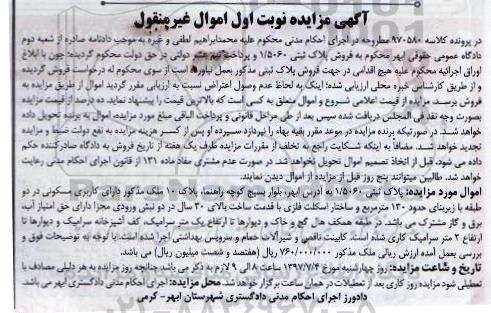 آگهی مزایده نوبت اول اموال غیرمنقول
در پرونده کلاسه ۹۷۰۵۸۰ مطروحه در اجرای احکام مدنی محکوم علیه محمدابراهیم لطفی و غیره به موجب دادنامه صادره از شعبه دوم
دادگاه عمومی حقوقی ابهر محکوم به فروش پلاک ثبتی ۱/۵۰۶۰ و پرداخت نیم عشر دولتی در حق دولت محکوم گردیده؛ چون با ابلاغ
اوراق اجرائیه محکوم علیه هیچ اقدامی در جهت فروش پلاک ثبتی مذکور بعمل نیاورده است از سوی محکوم له درخواست فروش گردیده
و از طریق کارشناس خبره محلی ارزیابی شده؛ اینک به لحاظ عدم وصول اعتراض نسبت به ارزیابی مقرر گردید اموال از طریق مزایده به
فروش برسد. مزایده از قیمت اعلامی شروع و اموال متعلق به کسی است که بالاترین قیمت را پیشنهاد نماید. ده درصد از قیمت مزایده
بصورت وجه نقد فی المجلس دریافت شده سپس بعد از طی مراحل قانونی و پرداخت الباقی مبلغ مورد مزایده، اموال به برنده تحویل داده
خواهد شد. در صورتیکه برنده مزایده در موعد مقرر بقیه بهاء را نپردازد سپرده او پس از کسر هزینه مزایده به نفع دولت ضبط و مزایده
تجدید خواهد شد. مضافاً به اینکه شکایت راجع به تخلف از مقررات مزایده ظرف یک هفته از تاریخ فروش به دادگاه صادرکننده حکم
داده می شود. قبل از اتخاذ تصمیم اموال تحویل نخواهد شد. در صورت عدم مشتری مفاد ماده ۱۳۱ از قانون اجرای احکام مدنی رعایت
خواهد شد. طالبین میتوانند پنج روز قبل از مزایده از اموال دیدن نمایند.
اموال مورد مزایده: پلاک ثبتی ۱/۵۰۶۰ به آدرس ابهر، بلوار بسیج کوچه راهنما، پلاک ۱۰ ملک مذکور دارای کاربری مسکونی در دو
طبقه با زیربنای حدود ۱۳۰ مترمربع و ساختار اسکلت فلزی با قدمت ساخت بالای ۳۰ سال در دو نبش ورودی مجزا دارای حق امتیاز آب،
برق و گاز مشترک می باشد. در طبقه همکف هال گچ و خاک و دیوارها تا ارتفاع یک متر سرامیک، کف آشپزخانه سرامیک و دیوارها تا
ارتفاع ۲ متر سرامیک کاری شده است. کابینت ناقص و شیرآلات حمام و سرویس بهداشتی اجرا شده است. با توجه به توضیحات فوق و
بررسی بعمل آمده ارزش ریالی ملک مذکور ۷۶۰/۰۰۰/۰۰۰ ریال (هفتصد و شصت میلیون ریال) می باشد.
تاریخ و شاعت مزایده: روز چهارشنبه مورخ ۱۳۹۷/۷/۴ ساعت ۸ الی ۹ لازم به ذکر می باشد چنانچه روز مزایده به هر دلیلی مصادف با
تعطیلی شود مزایده روز کاری بعد از تعطیلات در همان ساعت برگزار خواهد شد. محل مزایده: اجرای احکام مدنی دادگستری ابهر می باشد.
دادورز اجرای احکام مدنی دادگستری شهرستان ابهر- کرمی